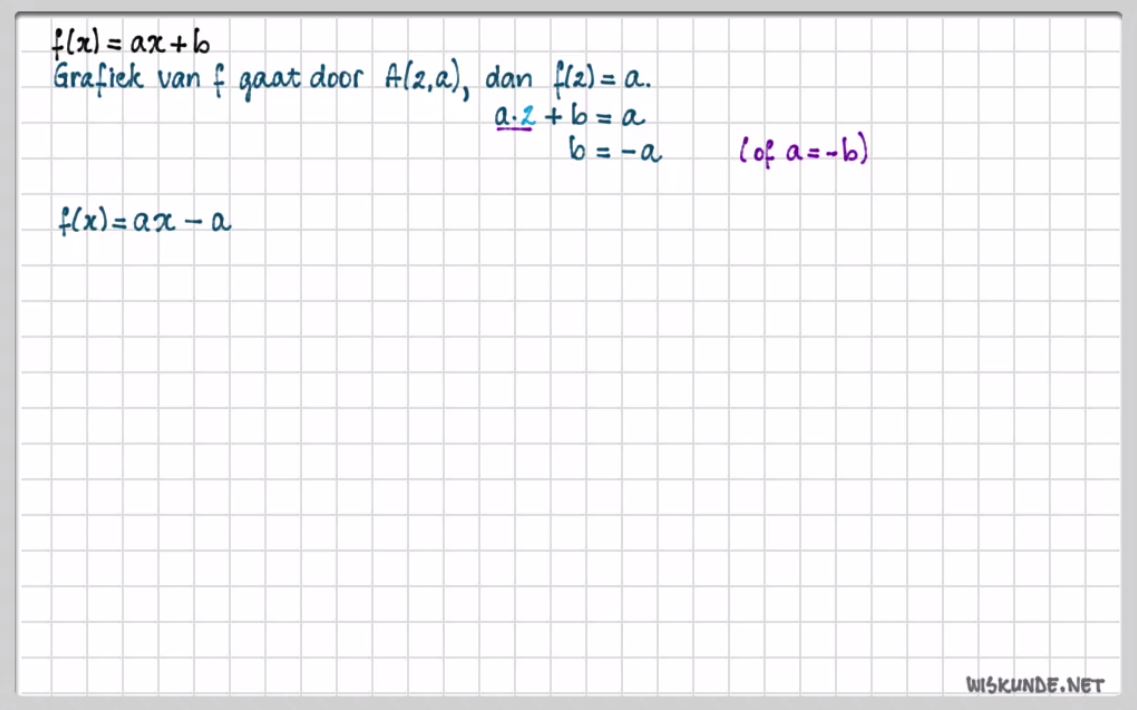 f(x) = ax + b
Grafiek van f gaat door A(2,a), dan f(2) = a.
a·2 + b = a
b = -a (of a = -b)
f(x) = ax - a
WISKUNDE.NET